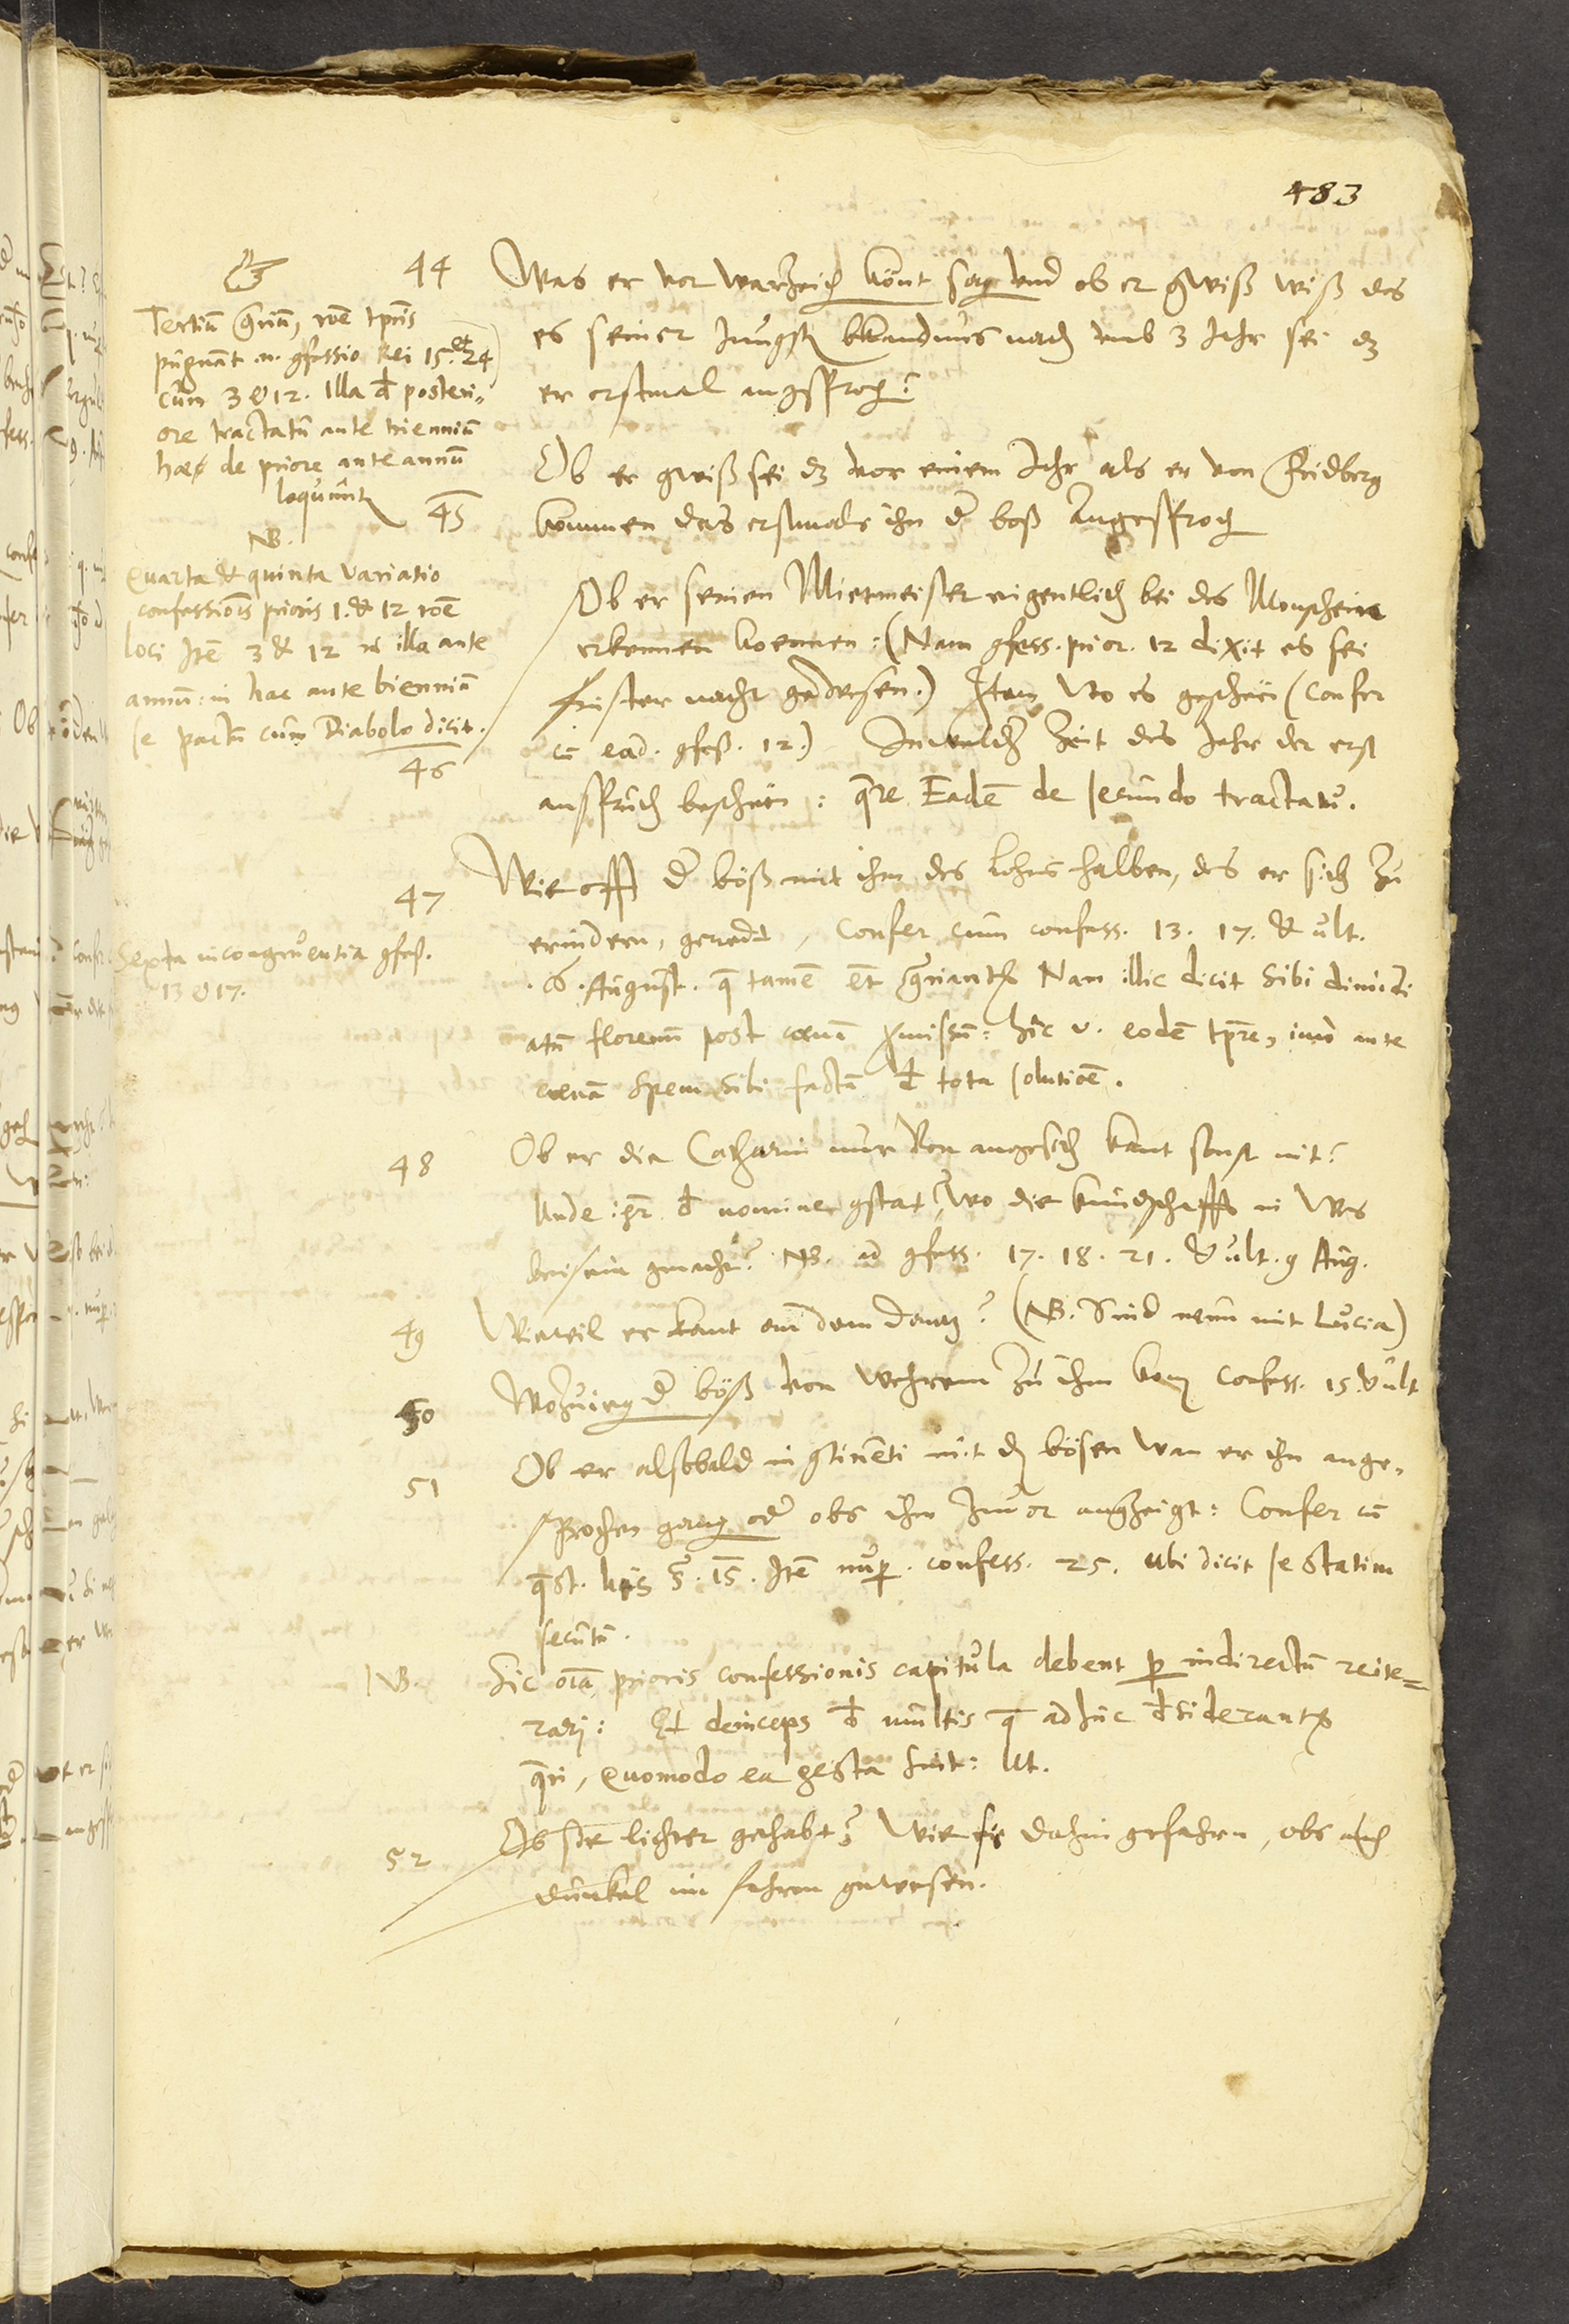 483
44 Was er vor warzeich könt sag und ob er gwiß wiß das
es seiner jungst bkandnus nach umb 3 Jahr sei dz
er erstmal angsproch?
Tertiu qriu, roe tpris
pugnat .n. gfessio Rei 15. et 24
cum 3 & 12. Illa d posteri,,
ore tractatu ante trienniu
haec de priore ante annu
loquunt
45 Ob er gwiß sei dz vor einem Jahr als er von Fridberg
kommen das erstmals ihn d boß angesproch
NB.
Quarta & quinta variatio
confessiois prioris 1. & 12 roe
loci Ite 3 & 12 illa ante
annu: in hac ante bienniu
se pactu cum Diabolo dicit.
46 Ob er seinen Mietmeister eigentlich bei des Monschein
erkennen koennen: (Nam gfess. prior. 12 dixit es sei
finster nacht gewesen.) Item wo es geschen (Confer
cu ead. gfess. 12.) In welcher Zeit des Jahr der erst
anspruch beschen: qre Eade de secundo tractatu.
47 Wie offt d böß mit ihm des Lohns halben, des er sich zu
erindern, geredt, Confer cum confess. 13. 17. & ult.
.6. August. q tame et qriant Nam illic dicit sibi dimidi
atu florenu post coena pmissu: hic v. eode tpre, imo ante
coena spem sibi facta d tota solutioe.
Sexta incongruentia gfess.
13 & 17.
48 Ob er die Catharin nur von angesich kant sonst nit?
Unde igr d nomine gstat? Wo die kundschafft in Wes
beisein gmacht? NB. ad gfess. 17. 18. 21. & ult. 9 Aug.
49 Wieveil er kant an dem Dantz? (NB. Sind neun mit Lucia)
50 Wohinei d böß von Wehrem zu ihm kom confess. 15. & ult
51 Ob er alsbald in gtineti mit de bösen wan er ihn ange,,
sprochen gang oder obs ihm zuvor angzeigt: Confer cu
qst. his 3. 15. Ite nup. confess. 25. ubi dicit se statim
secutu.
NB. Sic oia prioris confessionis capitula debent p indirectu reite=
rari: Et deinceps d multis q adhuc dsiderant
qri, quomodo ea gesta sint: Ut.
52 Ob sie lichter gehabt? Wie sie dahin gefahrn, obs auch
dunkel im fahren gewesen.